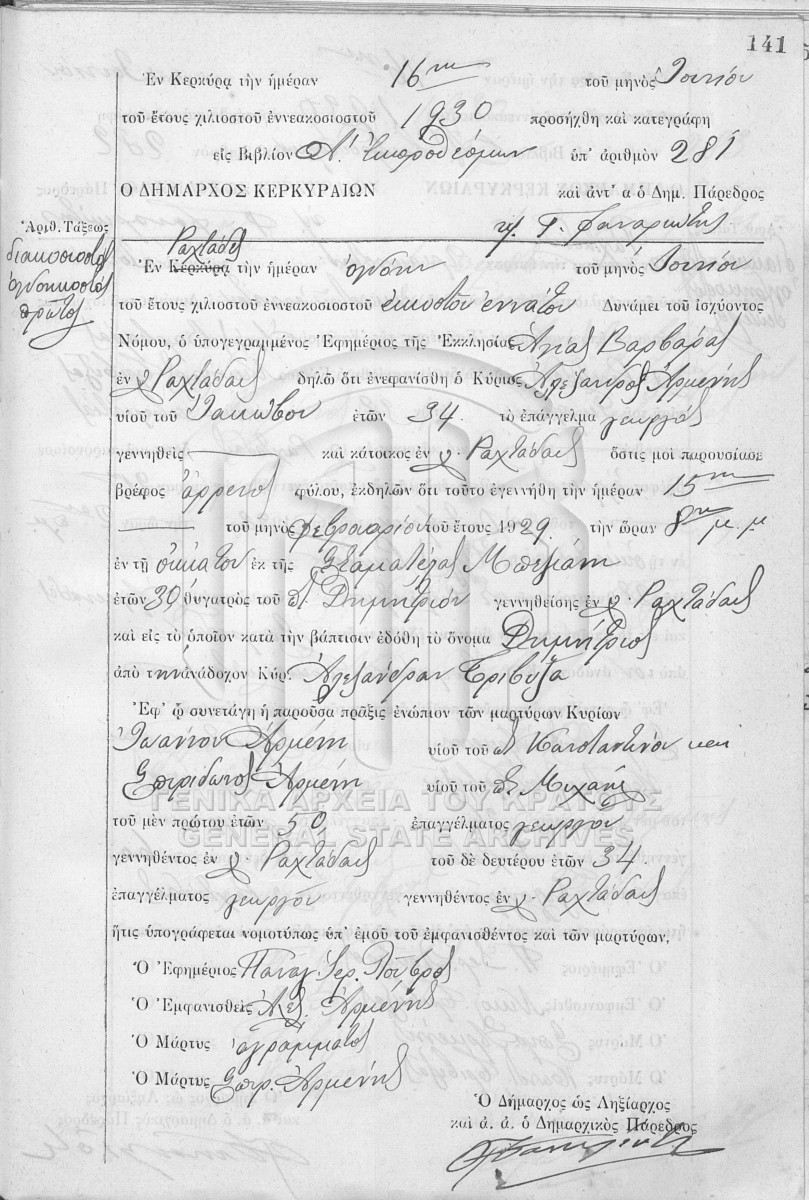 141
Ἐν Κερκύρᾳ τὴν ἡμέραν 16ην τοῦ μηνὸς Ἰουνίου
τοῦ ἔτους χιλιοστοῦ ἐννεακοσιοστοῦ 1930 προσήχθη καὶ κατεγράφη
εἰς Βιβλίον Α. Ἐκπροθέσμων ὑπ' ἀριθμὸν 281
Ο ΔΗΜΑΡΧΟΣ ΚΕΡΚΥΡΑΙΩΝ καὶ ἀντ' α ὁ Δημ. Πάρεδρος
Φ. Φαναριώτης
Ἀριθ. Τάξεως
διακοσιοστὸς
ὀγδοηκοστὸς
πρῶτος
Ραχτάδες
Ἐν Κερκύρᾳ τὴν ἡμέραν ὀγδόην τοῦ μηνὸς Ἰουνίου
τοῦ ἔτους χιλιοστοῦ ἐννεακοσιοστοῦ εἰκοστοῦ ἐννάτου Δυνάμει τοῦ ἰσχύοντος
Νόμου, ὁ ὑπογεγραμμένος Ἐφημέριος τῆς Ἐκκλησίας Ἁγίας Βαρβάρας
ἐν χ. Ραχτάδες δηλῶ ὅτι ἐνεφανίσθη ὁ Κύριος Ἀλέξανδρος Ἀρμένης
υἱοῦ τοῦ Ἰακώβου ἐτῶν 34 τὸ ἐπάγγελμα γεωργὸς
γεννηθεὶς καὶ κάτοικος ἐν χ. Ραχτάδες ὅστις μοὶ παρουσίασε
βρέφος ἄρρενος φύλου, ἐκδηλῶν ὅτι τοῦτο ἐγεννήθη τὴν ἡμέραν 15ην
τοῦ μηνὸς Φεβρουαρίου τοῦ ἔτους 1929 τὴν ὥραν 8ην μ.μ
ἐν τῇ οἰκίᾳ του ἐκ τῆς Σταματέλας
ἐτῶν 30 θυγατρὸς τοῦ π. Δημητρίου γεννηθείσης ἐν χ. Ραχτάδες
καὶ εἰς τὸ ὁποῖον κατὰ τὴν βάπτισιν ἐδόθη τὸ ὄνομα Δημήτριος
ἀπὸ τὴν ἀνάδοχον Κύρ. Ἀλεξάνδραν Τριβυζᾶ
Ἐφ' ᾧ συνετάγη ἡ παροῦσα πρᾶξις ἐνώπιον τῶν μαρτύρων Κυρίων
Ἰωάννου Ἀρμένη υἱοῦ τοῦ π. Κωσταντίνου καὶ
Σπυρίδωνος Ἀρμένη υἱοῦ τοῦ π. Μιχαὴλ
ΓΕΝΙΚΑ ΑΡΧΕΙΑ ΤΟΥ ΚΡΑΤΟΥΣ
τοῦ μὲν πρώτου ἐτῶν 50 ἐπαγγέλματος γεωργοῦ
GENERAL STATE ARCHIVES
γεννηθέντος ἐν χ. Ραχτάδες τοῦ δὲ δευτέρου ἐτῶν 34
ἐπαγγέλματος γεωργοῦ γεννηθέντος ἐν χ. Ραχτάδες
ἥτις ὑπογράφεται νομοτύπως ὑπ' ἐμοῦ τοῦ ἐμφανισθέντος καὶ τῶν μαρτύρων.
Ὁ Ἐφημέριος Παναγ. Ἱερ.
Ὁ Ἐμφανισθεὶς Ἀλέξ. Ἀρμένης
Ὁ Μάρτυς ἀγράμματος
Ὁ Μάρτυς Σπυρ. Ἀρμένης
Ὁ Δήμαρχος ὡς Ληξίαρχος
καὶ ἀ. ἀ. ὁ Δημαρχικὸς Πάρεδρος